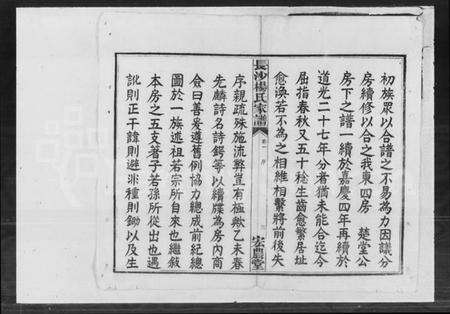 初族眾以合譜之不易為力因議分
房續修以合之我東四房　楚堂公
房下之譜一續於嘉慶四年再續於
道光二十七年分者猶未能合迄今
屈指春秋又五十稔生齒愈繁居址
愈渙若不為之相維相繫將前後失
長沙楊氏家譜
卷一　序
宏農堂
序親疏殊施流弊豈有極歟乙未春
先麟詩名詩鍔等以續牒為房內商
僉曰善爰遵舊例協力總成前紀總
圖於一族述祖若宗所自來也繼敘
本房之五支著子若孫所從出也遇
訛則正干諱則避非種則鋤以及生